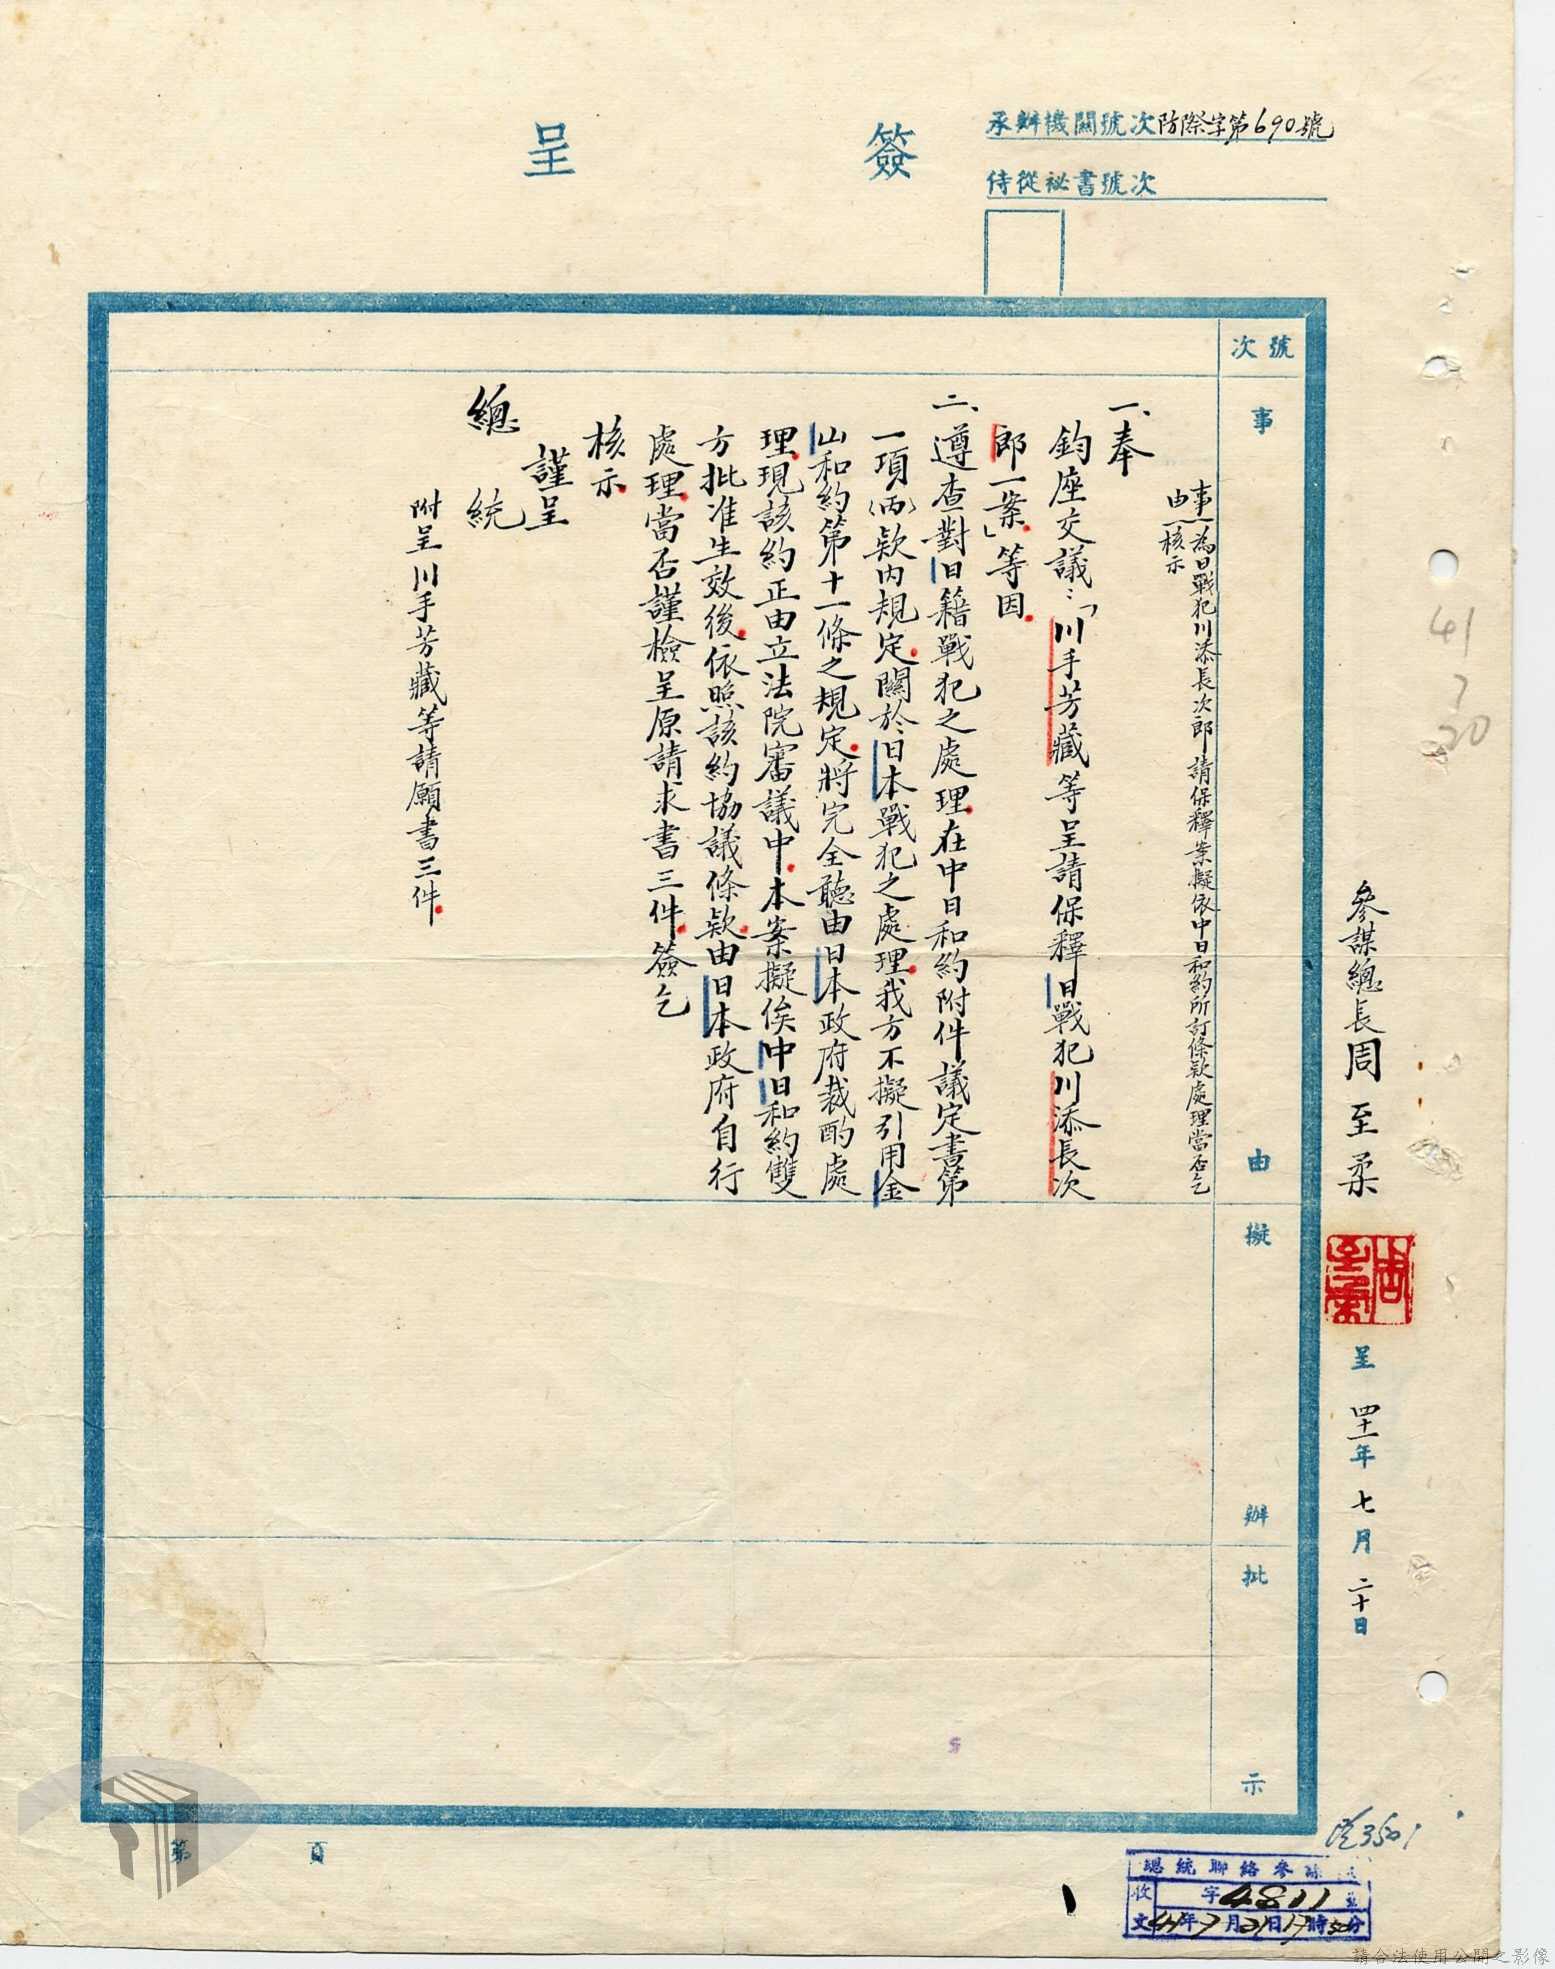 簽呈
承辦機關號次防際字第690號
侍從祕書號次
參謀總長周至柔
周至柔
呈 四十一年七月二十日
號次
事由
擬辦
批示
事由 為日戰犯川添長次郎請保釋案擬依中日和約所訂條款處理當否乞
核示
一、奉
鈞座交議:「川手芳藏等呈請保釋日戰犯川添長次
郎一案」等因
二、遵查對日籍戰犯之處理在中日和約附件議定書第
一項(丙)款內規定關於日本戰犯之處理我方不擬引用金
山和約第十一條之規定將完全聽由日本政府裁酌處
理現該約正由立法院審議中本案擬俟中日和約雙
方批准生效後依照該約協議條款由日本政府自行
處理當否謹檢呈原請求書三件簽乞
核示
謹呈
總統
附呈川手芳藏等請願書三件
41
7
20
第 頁
總統聯絡參
收 字4811
文41年7月21日17時50分
請合法使用公開之影像